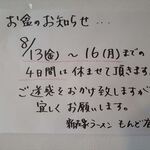 お盆のお知らせ...
8/13(金) ～ 16(月)までの
4日間は 休ませて頂きます。
ご迷惑をおかけ致しますが
宜しくお願いします。
ラーメン もんど